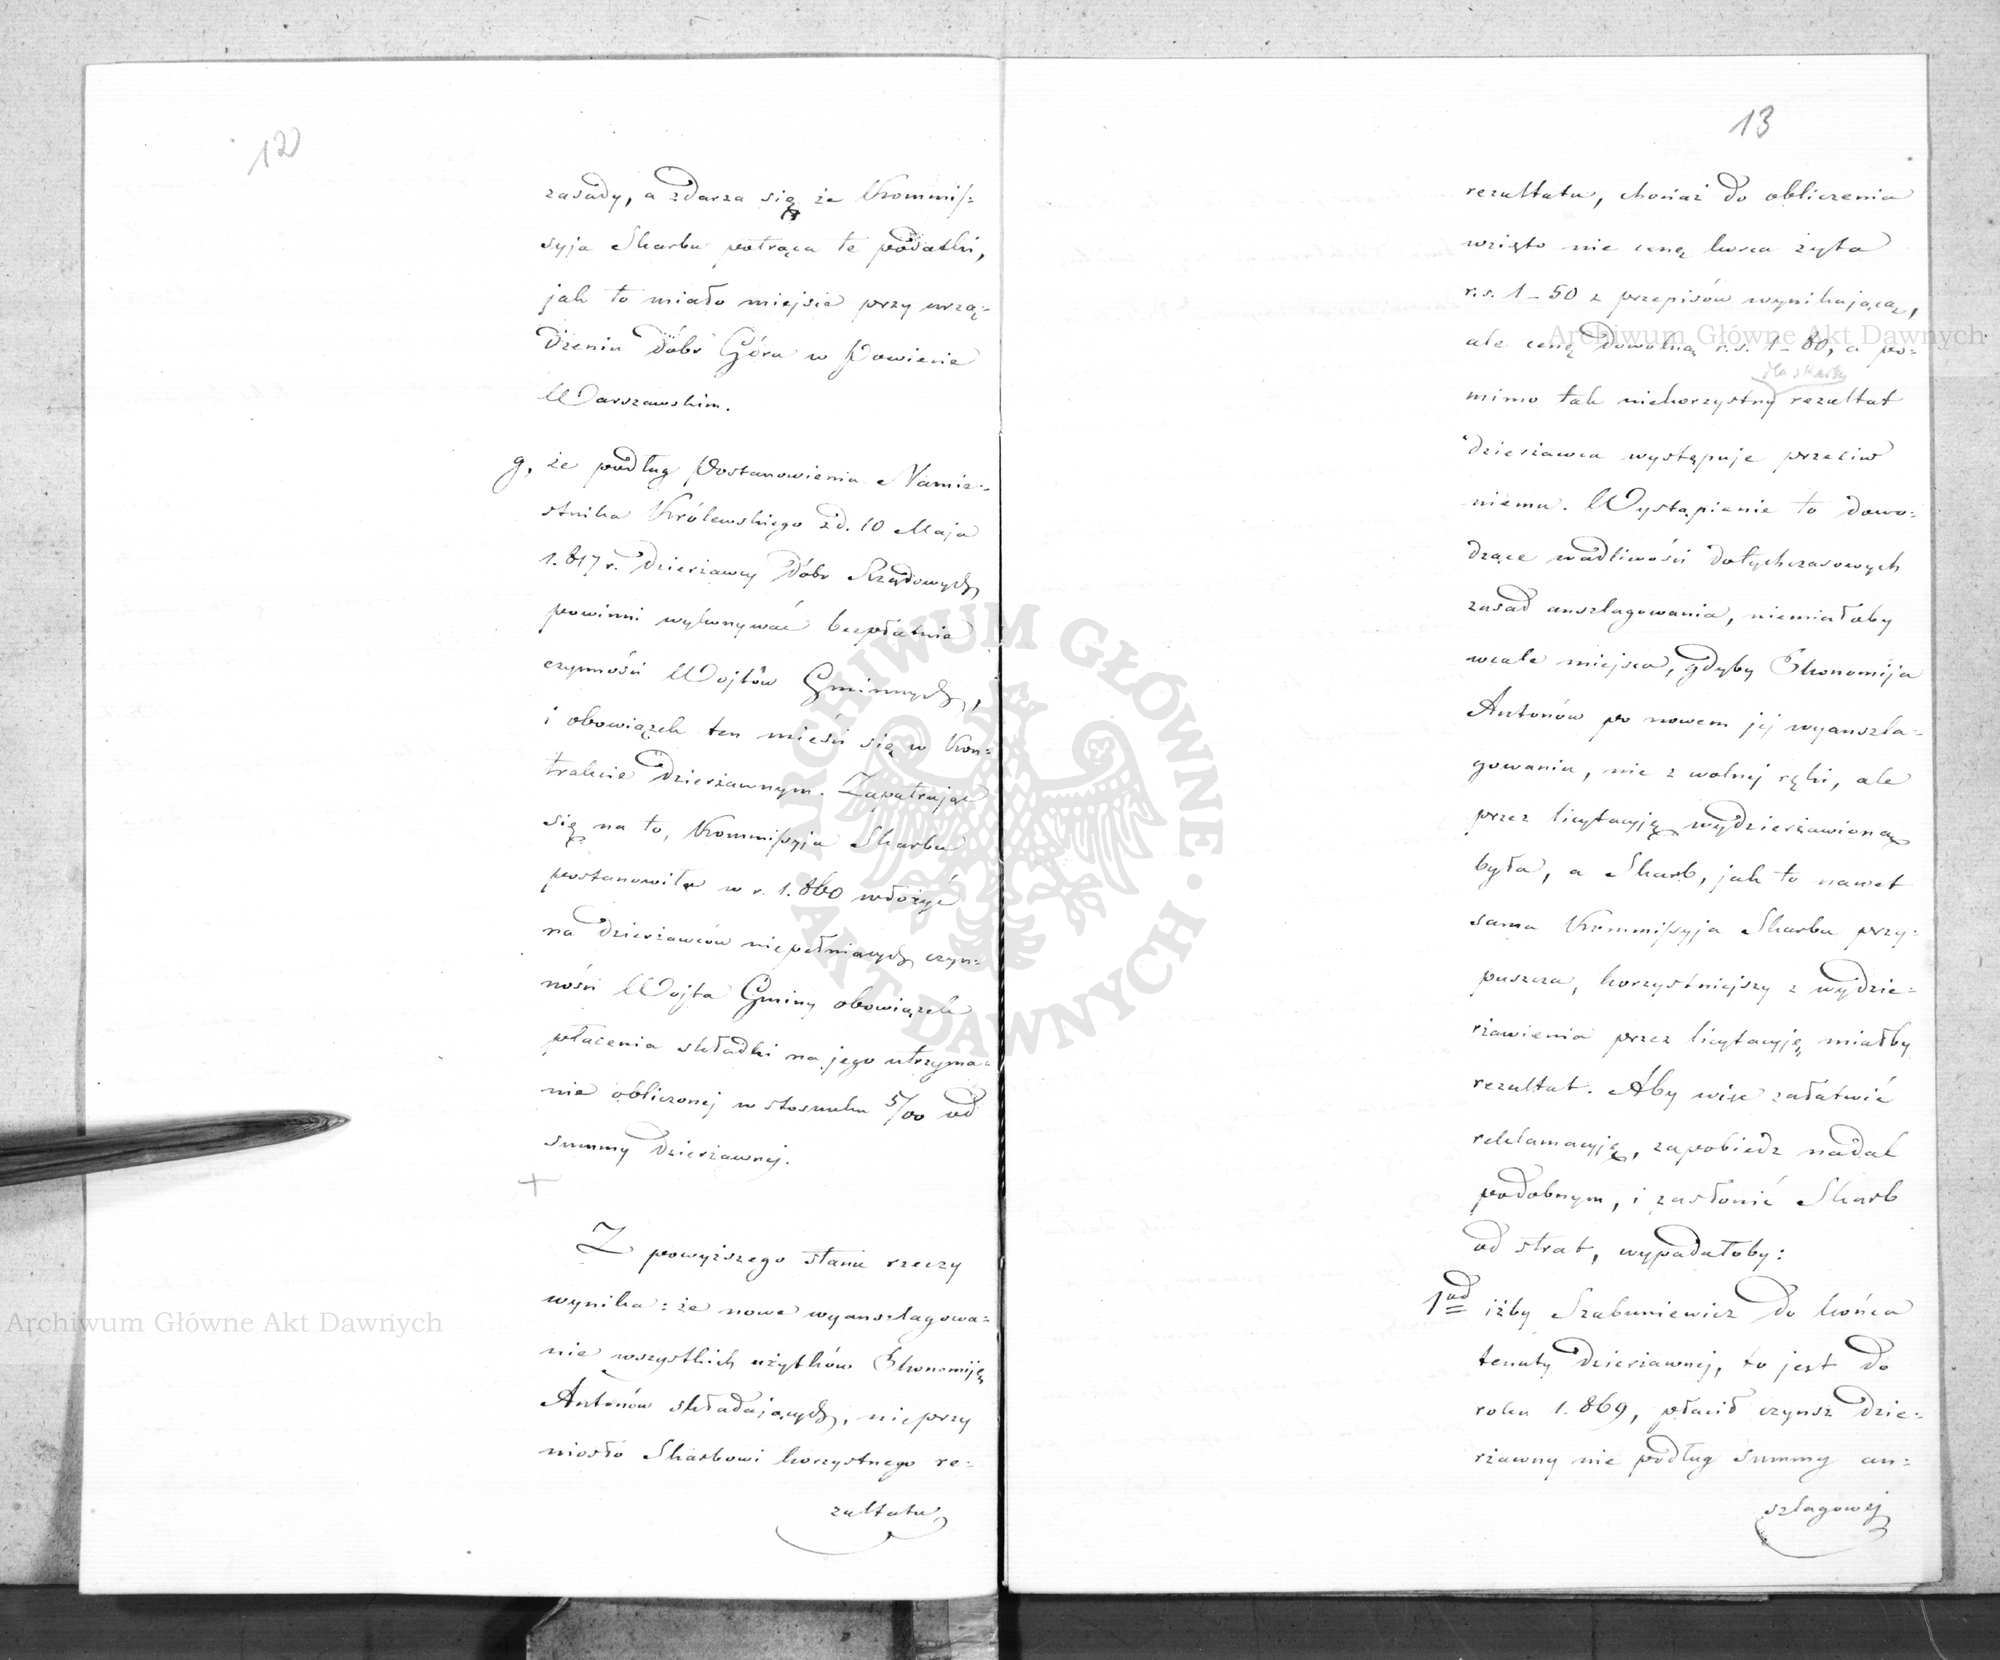 12
zasady, a zdarza się że Kommis-
syja Skarbu potrąca te podatki,
jak to miało miejsce przy urzą-
dzeniu dóbr Góra w Powiecie
Warszawskim.
g, że podług Postanowienia Namie-
stnika Królewskiego z d. 10 Maja
1.817 r. dzierżawcy dóbr Rządowych
powinni wykonywać bezpłatnie
czynności Wojtów Gminnych,
i obowiązek ten mieści się w kon-
trakcie dzierżawnym. Zapatrując
się na to, Kommissyja Skarbu
postanowiła w r. 1.860 włożyć
na dzierżawców niepełniących czyn-
ności Wojta Gminy obowiązek
płacenia składki na jego utrzyma-
nie obliczonej w stosunku 5/00 od
summy dzierżawnej.
+
Z powyższego stanu rzeczy
wynika: że nowe wyanszlagowa-
nie wszystkich użytków Ekonomiję
Antonów składających, nieprzy
niosło Skarbowi korzystnego re-
zultatu,
13
rezultatu, chociaż do obliczenia
wzięto nie cenę korca żyta
r.s. 1-50 z przepisów wynikającą,
ale cenę dowolną r.s. 1-80, a po-
dla Skarbu
mimo tak niekorzystny rezultat
dzierżawca występuje przeciw
niemu. Wystąpienie to dowo-
dzące wadliwości dotychczasowych
zasad anszlagowania, niemiałoby
wcale miejsca, gdyby Ekonomija
Antonów po nowem jej wyanszla-
gowaniu, nie z wolnej ręki, ale
przez licytacyję wydzierżawioną
była, a Skarb, jak to nawet
sama Kommissyja Skarbu przy-
puszcza, korzystniejszy z wydzie-
rżawienia przez licytacyję miałby
rezultat. Aby więc załatwić
reklamacyję, zapobiedz nadal
podobnym, i zasłonić Skarb
od strat, wypadałoby:
1od iżby Szabuniewicz do końca
tenuty dzierżawnej, to jest do
roku 1.869, płacił czynsz dzie-
rżawny nie podług summy an-
szlagowej
Archiwum Główne Akt Dawnych
Archiwum Główne Akt Dawnych
ARCHIWUM GŁÓWNE · AKT DAWNYCH ·